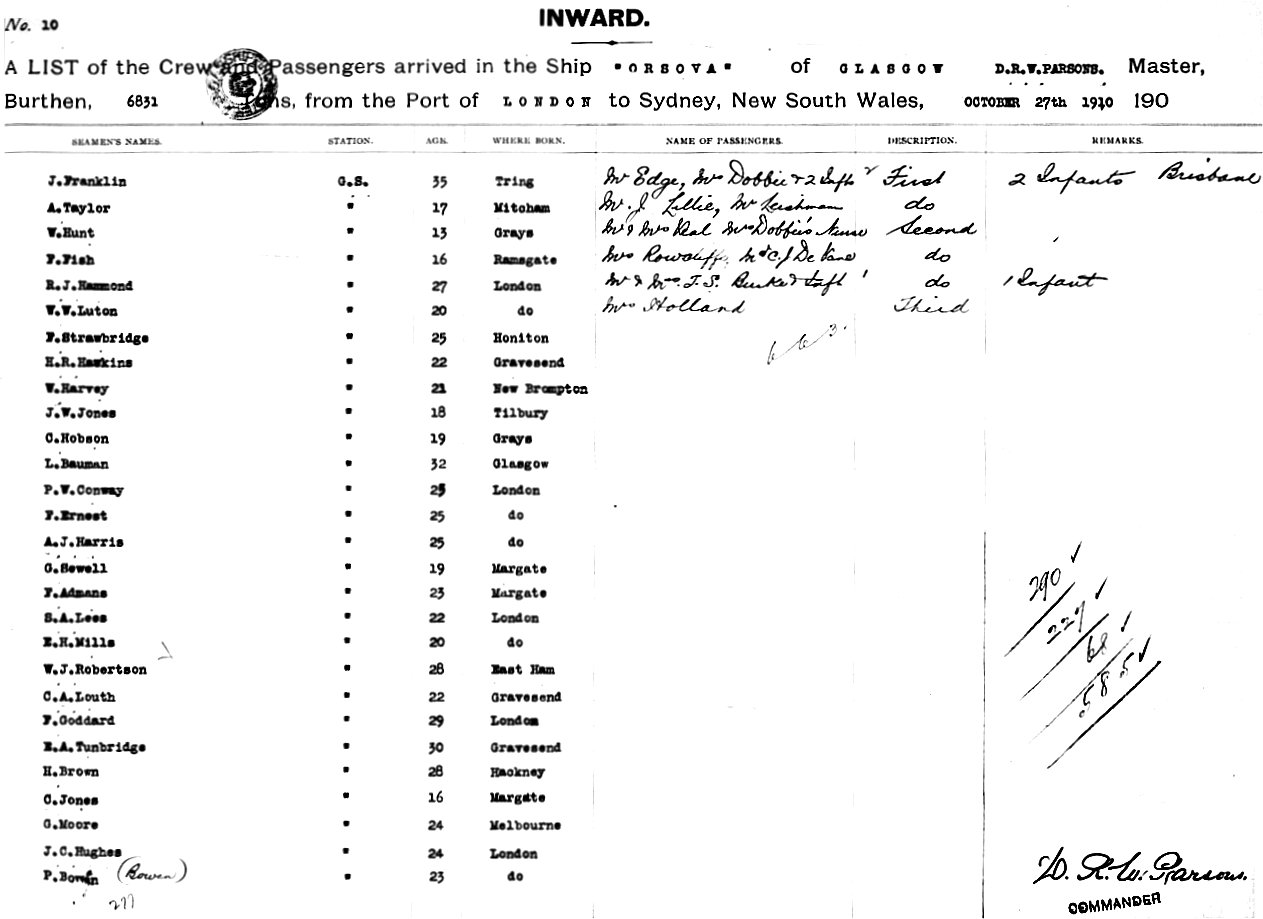 No. 10
INWARD.
A LIST of the Crew and Passengers arrived in the Ship "ORSOVA" of GLASGOW D.R.W.PARSONS. Master,
Burthen, 6831 Tons, from the Port of LONDON to Sydney, New South Wales, OCTOBER 27th 1910 190
SEAMEN'S NAMES. STATION. AGE. WHERE BORN. NAME OF PASSENGERS. DESCRIPTION. REMARKS.
J.Franklin G.S. 35 Tring Mr Edge, Mrs Dobbie & 2 Infts First 2 Infants Brisbane
A.Taylor " 17 Mitcham Mr. J. Lillie, Mr Leishman do
W.Hunt " 13 Grays Mr & Mrs Mrs Dobbie's Nurse Second
F.Fish " 16 Ramsgate Mrs Rowcliffe, C.J. De Vane do
R.J.Hammond " 27 London Mr & Mrs F.S. Burke & Inft do 1 Infant
W.W.Luton " 20 do Mrs Holland Third
6 6 3.
F.Strawbridge " 25 Honiton
H.R.Hawkins " 22 Gravesend
W.Harvey " 21 New Brompton
J.W.Jones " 18 Tilbury
C.Hobson " 19 Grays
L.Bauman " 32 Glasgow
P.W.Conway " 25 London
F.Ernest " 25 do
A.J.Harris " 25 do
G.Sewell " 19 Margate
F.Admans " 23 Margate
S.A.Lees " 22 London
E.H.Mills " 20 do
W.J.Robertson " 28 East Ham
C.A.Louth " 22 Gravesend
F.Goddard " 29 London
E.A.Tunbridge " 30 Gravesend
H.Brown " 28 Hackney
C.Jones " 16 Margate
G.Moore " 24 Melbourne
J.C.Hughes " 24 London
P.Bowen (Bowen) " 23 do
277
290
227
68
585
D. R. W. Parsons.
COMMANDER